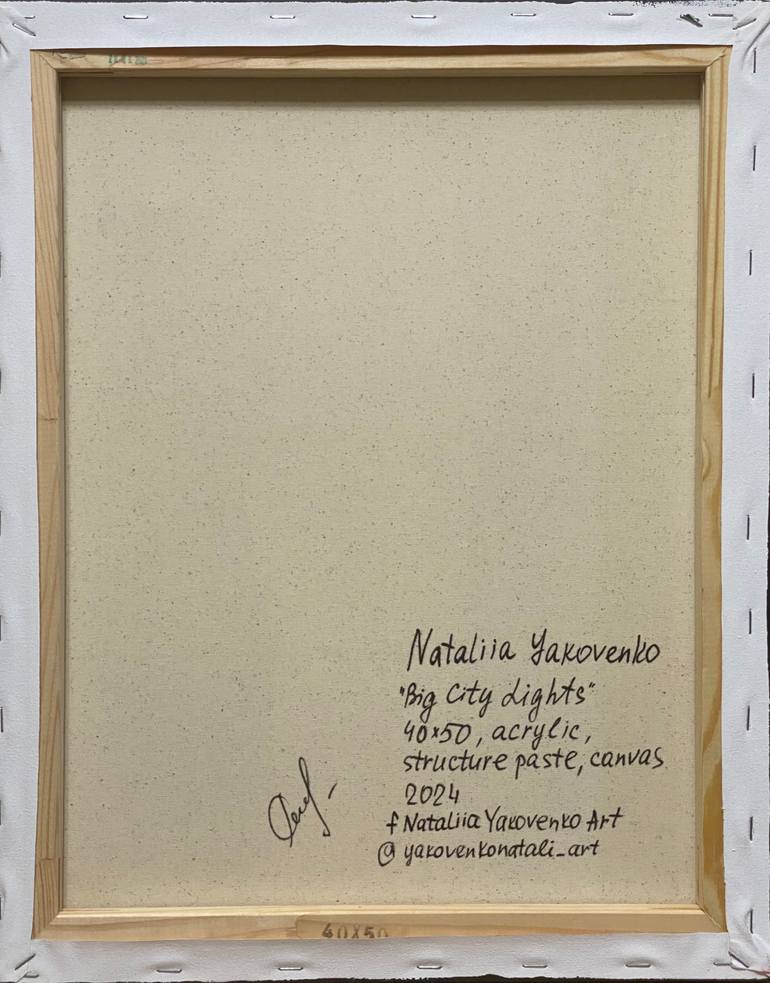 Nataliia Yakovenko
"Big City Lights"
40x50, acrylic,
structure paste, canvas
2024
f Nataliia Yakovenko Art
@ yakovenkonatali_art
40X50